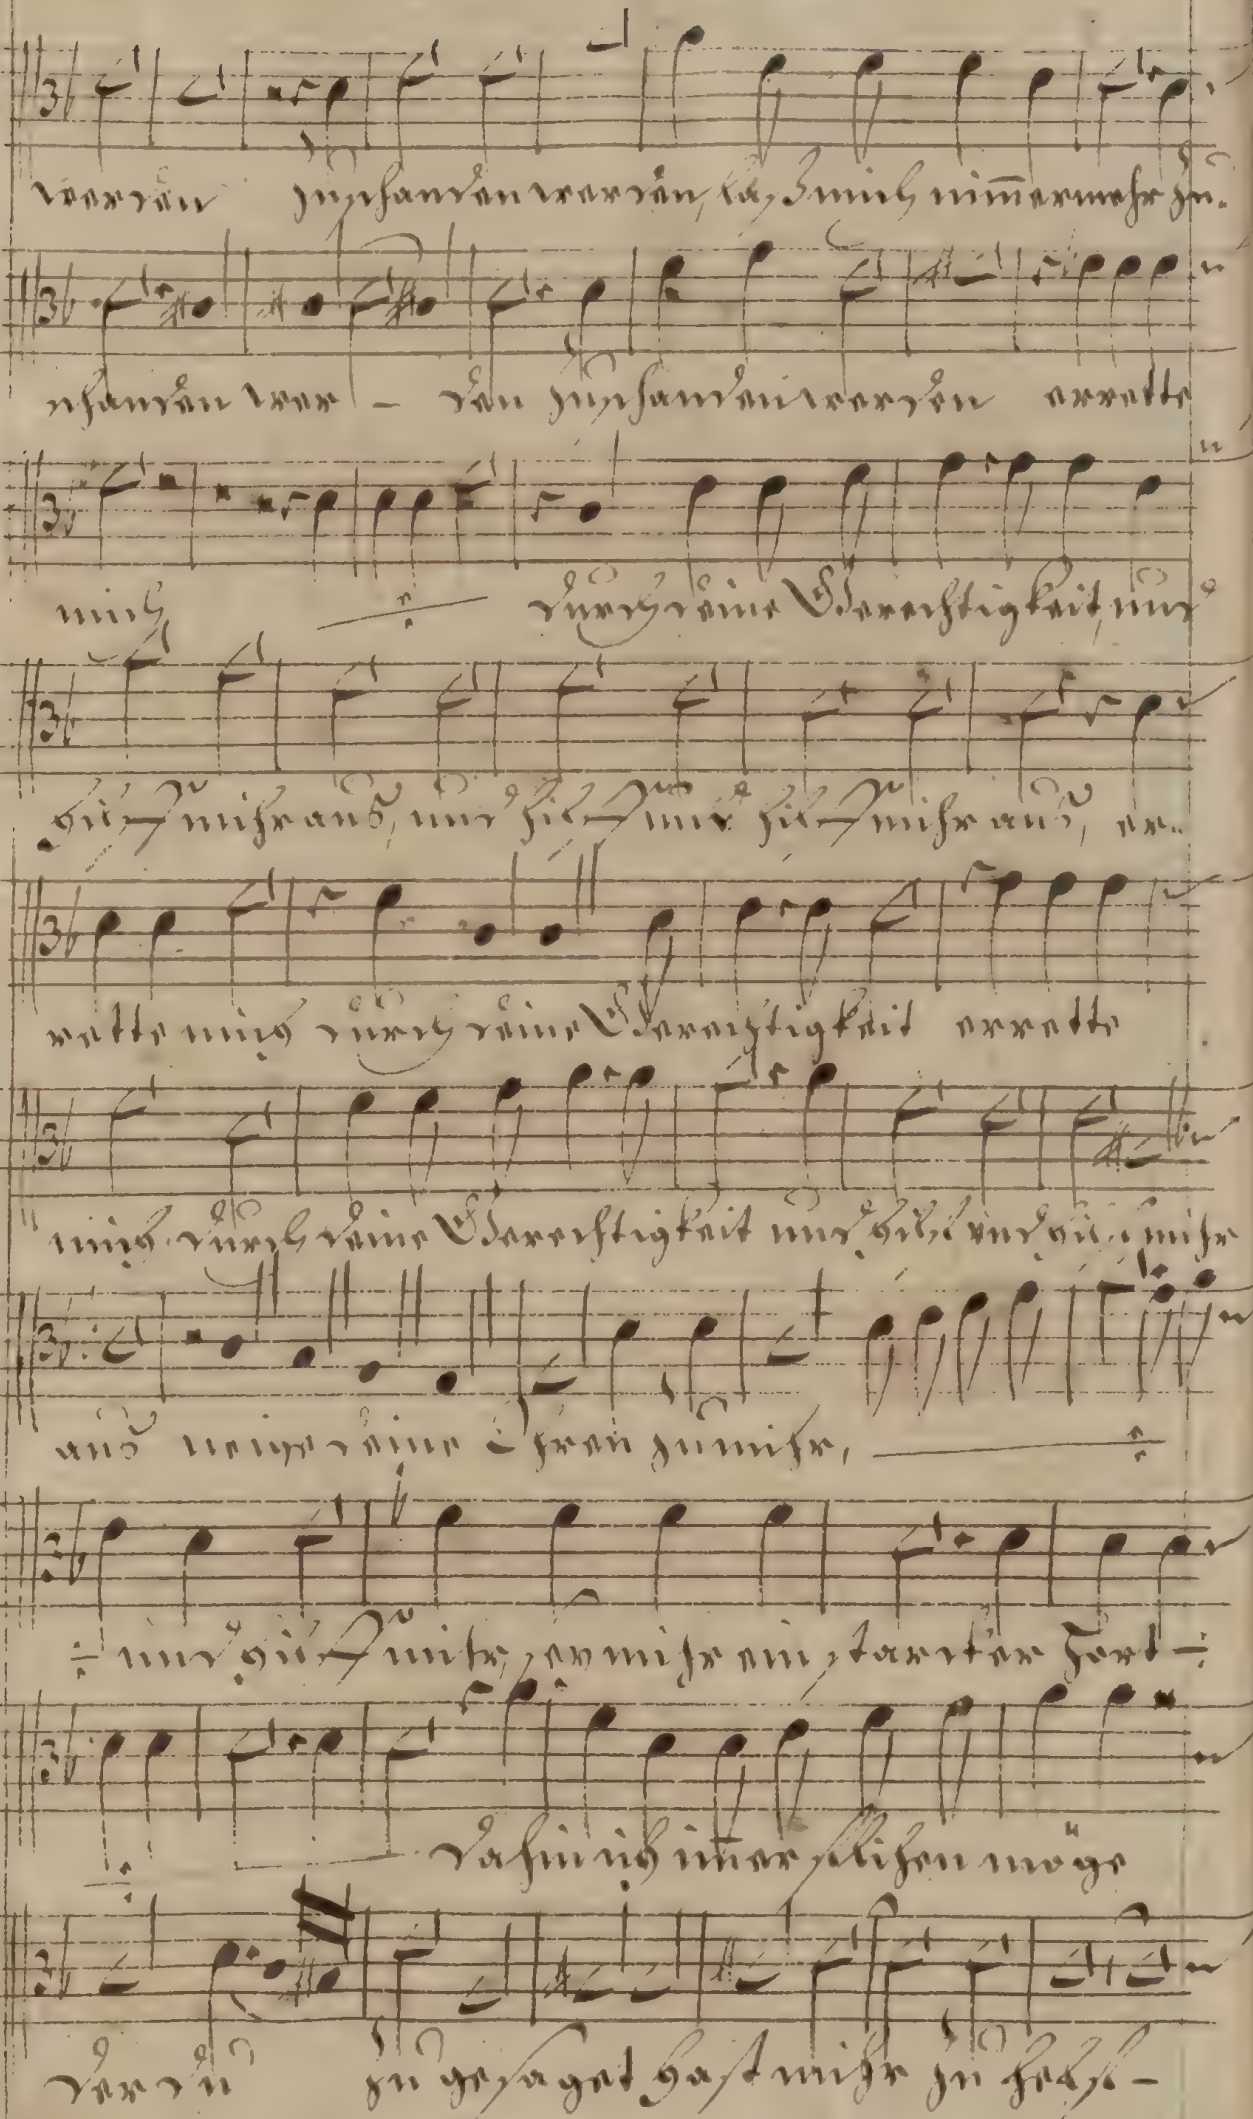 werden zuschanden werden, laß mich nim̄ermehr zu-
schanden wer - den zuschanden werden errette
mich ÷ durch deine Gerechtigkeit, und
hilff mihr aus, und hilff und hilff mihr aus, er-
rette mich durch deine Gerechtigkeit errette
mich durch deine Gerechtigkeit und hilff und hilff mihr
aus neige deine Ohren zu mihr, ÷
÷ und hilff mihr, sey mihr ein starcker Hort ÷
÷ dahin ich im̄er fliehen möge
der du zugesaget hast mihr zu helff-